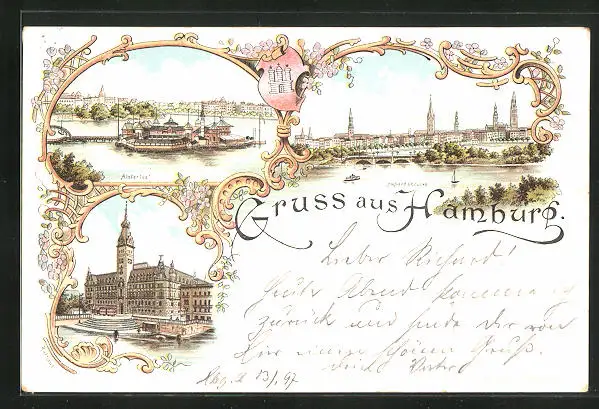 Alsterlust
Lombardsbrücke
Gruss aus Hamburg.
Lieber Richard!
Heute Abend komme ich
zurück und sende Dir von
hier einen schönen Gruß.
Dein
Hbg. d 13/1. 97